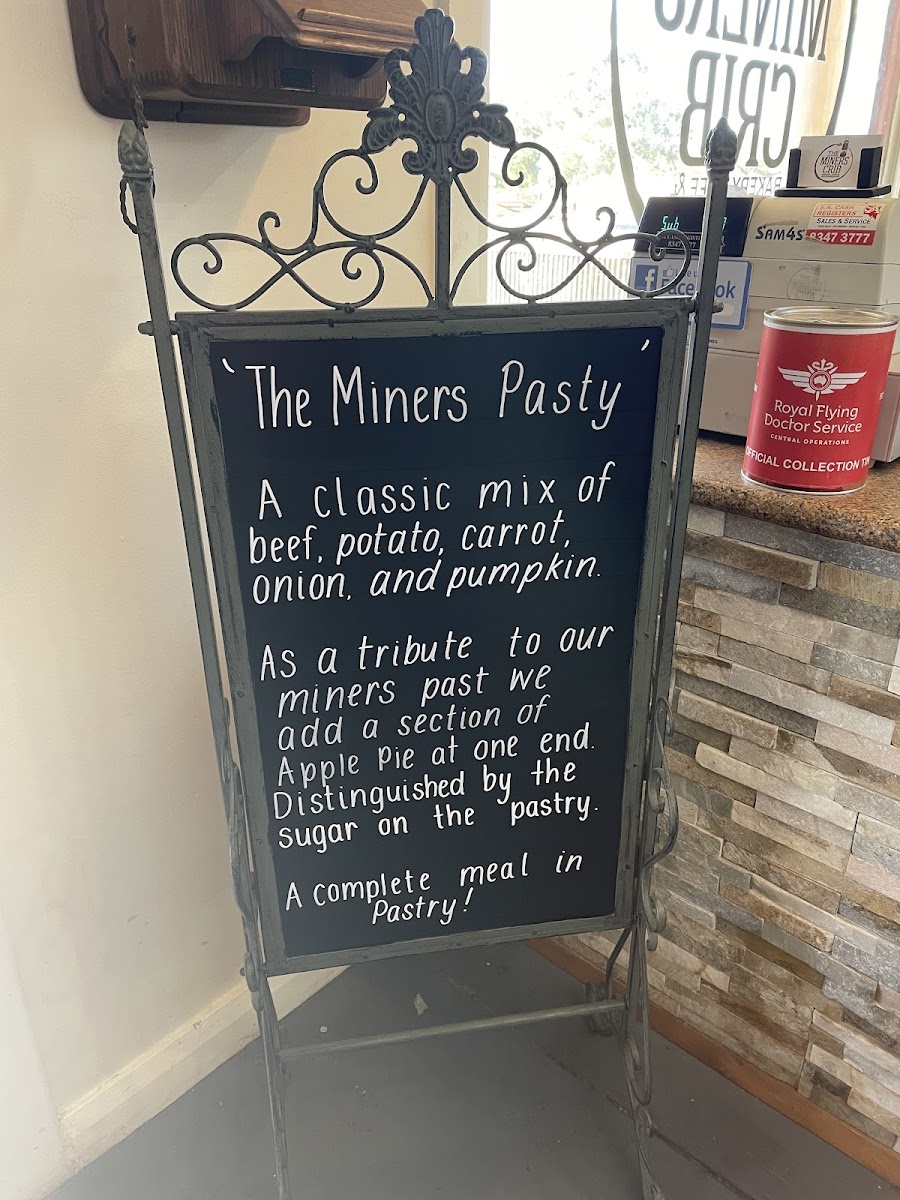 MINERS
CRIB
THE
MINERS
CRIB
S.A. CASH
REGISTERS
SALES & SERVICE
8347 3777
SAM4S
Sub
Facebook
Royal Flying
Doctor Service
CENTRAL OPERATIONS
OFFICIAL COLLECTION
'The Miners Pasty'
A classic mix of
beef, potato, carrot,
onion, and pumpkin.
As a tribute to our
miners past we
add a section of
Apple Pie at one end.
Distinguished by the
sugar on the pastry.
A complete meal in
Pastry!